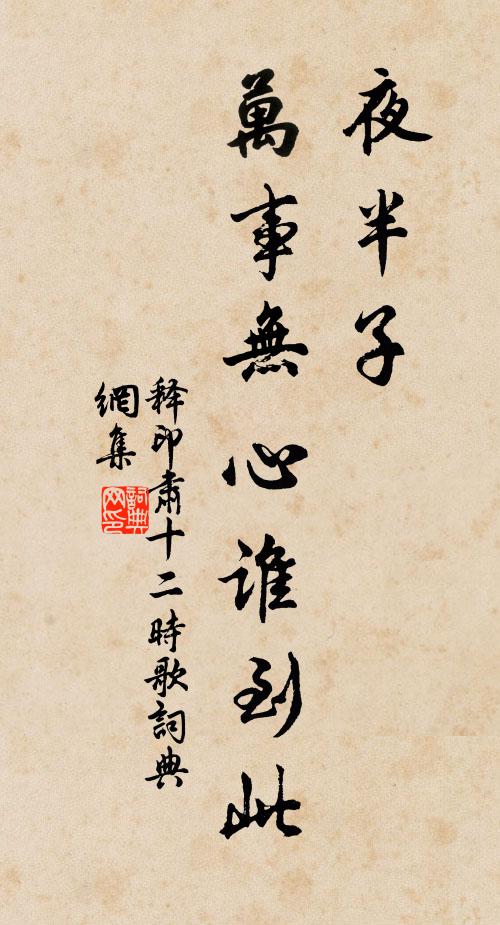 夜半子
萬事無心誰到此
释印肅十二時歌詞典
網集
詞典
网印